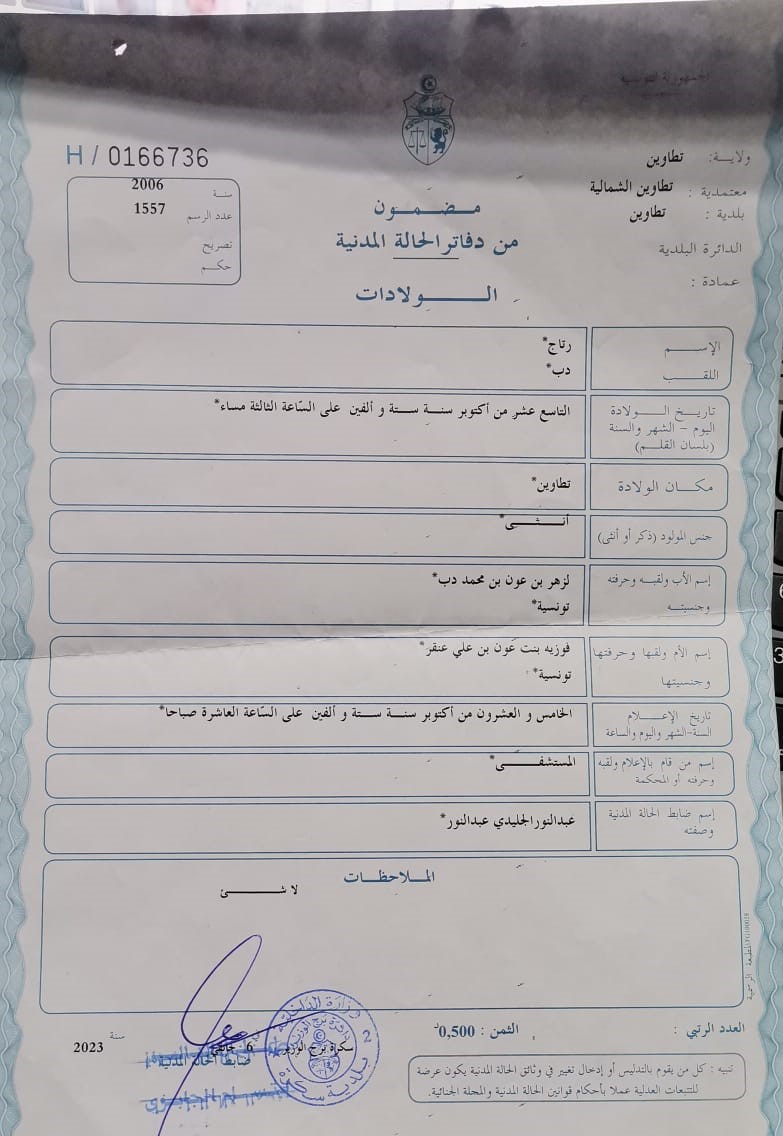 الجمهورية التونسية
ولاية: تطاوين
معتمدية : تطاوين الشمالية
بلدية : تطاوين
الدائرة البلدية
عمادة :
H / 0166736
سنة 2006
عدد الرسم 1557
تصريح
حكم
مضمون
من دفاتر الحالة المدنية
الولادات
الإسم رتاج*
اللقب دب*
تاريخ الولادة التاسع عشر من أكتوبر سنة ستة و ألفين على السّاعة الثالثة مساء*
اليوم - الشهر والسنة
(بلسان القلم)
مكان الولادة تطاوين*
جنس المولود (ذكر أو أنثى) أنثى*
إسم الأب ولقبه وحرفته لزهر بن عون بن محمد دب*
وجنسيته تونسية*
إسم الأم ولقبها وحرفتها فوزيه بنت عون بن علي عنقر*
وجنسيتها تونسية*
تاريخ الإعلام الخامس و العشرون من أكتوبر سنة ستة و ألفين على السّاعة العاشرة صباحا*
السنة-الشهر واليوم والساعة
إسم من قام بالإعلام ولقبه المستشفى*
وحرفته أو المحكمة
إسم ضابط الحالة المدنية عبدالنور الجليدي عبدالنور*
وصفته
الملاحظات
لا شئ
المطبعة الرسمية
العدد الرتبي :
الثمن : 0,500د
سكرة برج الوزير 6 جانفي سنة 2023
ضابط الحالة المدنية
وزارة الداخلية
بلدية سكرة
تنبيه : كل من يقوم بالتدليس أو إدخال تغيير في وثائق الحالة المدنية يكون عرضة
للتتبعات العدلية عملا بأحكام قوانين الحالة المدنية والمجلة الجنائية.